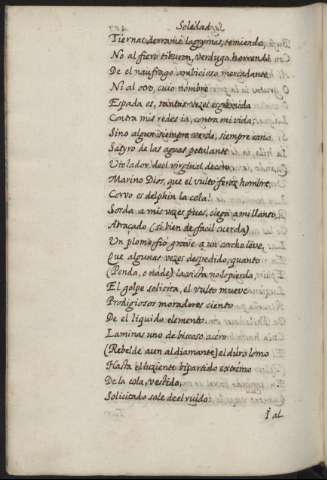 Soledad
Tiernas derramè lagrymas, temiendo,
No al fiero tiburon, verdugo horrendo
De el naufrago ambicioso mercadante
Ni al otro, cuio nombre
Espada es, tantas vezes esgrimida
Contra mis redes ia, contra mi vida;
Sino algun siempre verde, siempre cano
Satyro de las aguas petulante
Violador de el virginal decoro,
Marino Dios, que el vulto feroz hombre,
Corvo es delphin la cola.
Sorda a mis vozes pues, ciega a mi llanto,
Abraçado (si bien de facil cuerda)
Un plomo fio grave a un corcho leve,
Que algunas vezes despedido, quanto
(Penda, o nade) la vista no lo pierda,
El golpe solicita, el vulto mueve
Prodigiosos moradores ciento
De el liquido elemento.
Laminas uno de viscoso acero
(Rebelde aun al diamante) el duro lomo
Hasta el luziente bipartido extremo
De la cola, vestido,
Solicitado sale de el ruido:
I al